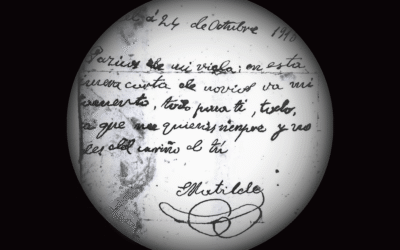 á 24 de Octubre 19
de mi vida: en esta
nueva carta de novios va mi
, todo para ti, todo,
a que me quieras siempre y no
cariño de tú
Matilde